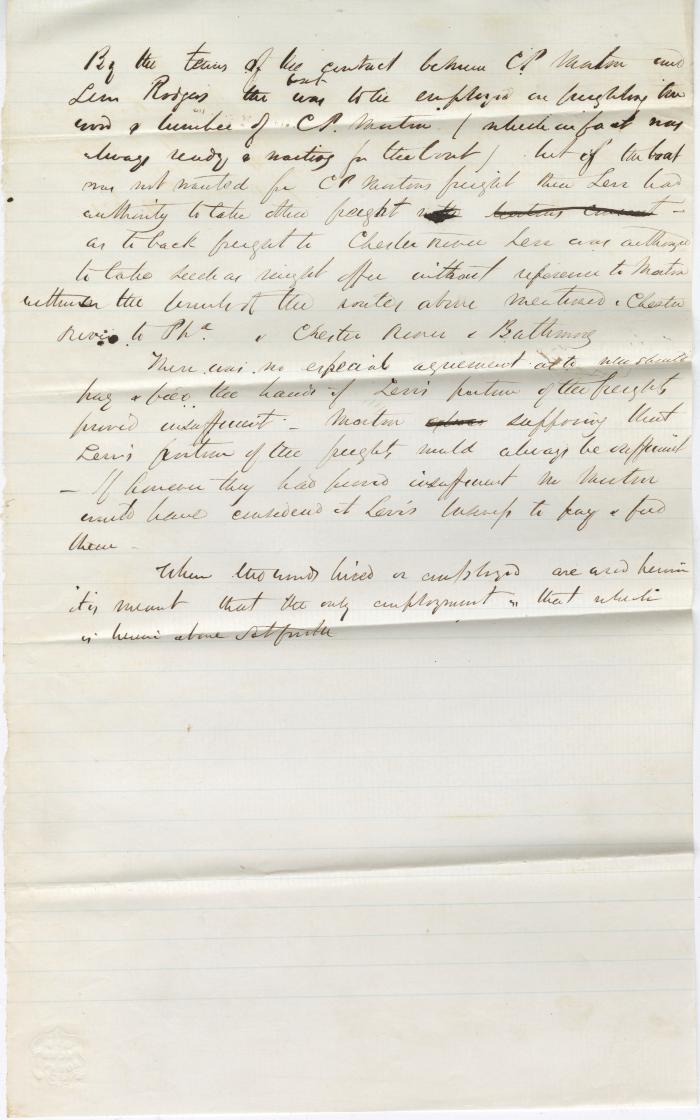 By the terms of the contract between C.P. Morton and
Levi Rodgers the boat was to be employed in freighting the
wood & lumber of C.P. Morton (which in fact was
always ready & waiting for the boat) but if the boat
was not wanted for C P Mortons freight then Levi had
authority to take other freight –
as to back freight to Chester River Levi was authorized
to take such as might offer without reference to Morton
within the limits of the routes above mentioned, Chester
River to Pha & Chester River & Baltimore
There was no especial agreement as to who should
pay & feed the hands if Levi's portion of the freights
proved insufficient – Morton supposing that
Levi's portion of the freights would always be sufficient
– If however they had proved insufficient Mr Morton
would have considered it Levi's business to pay & feed
them –
When the words hired or employed are used herein
it is meant that the only employment is that which
is herein above set forth